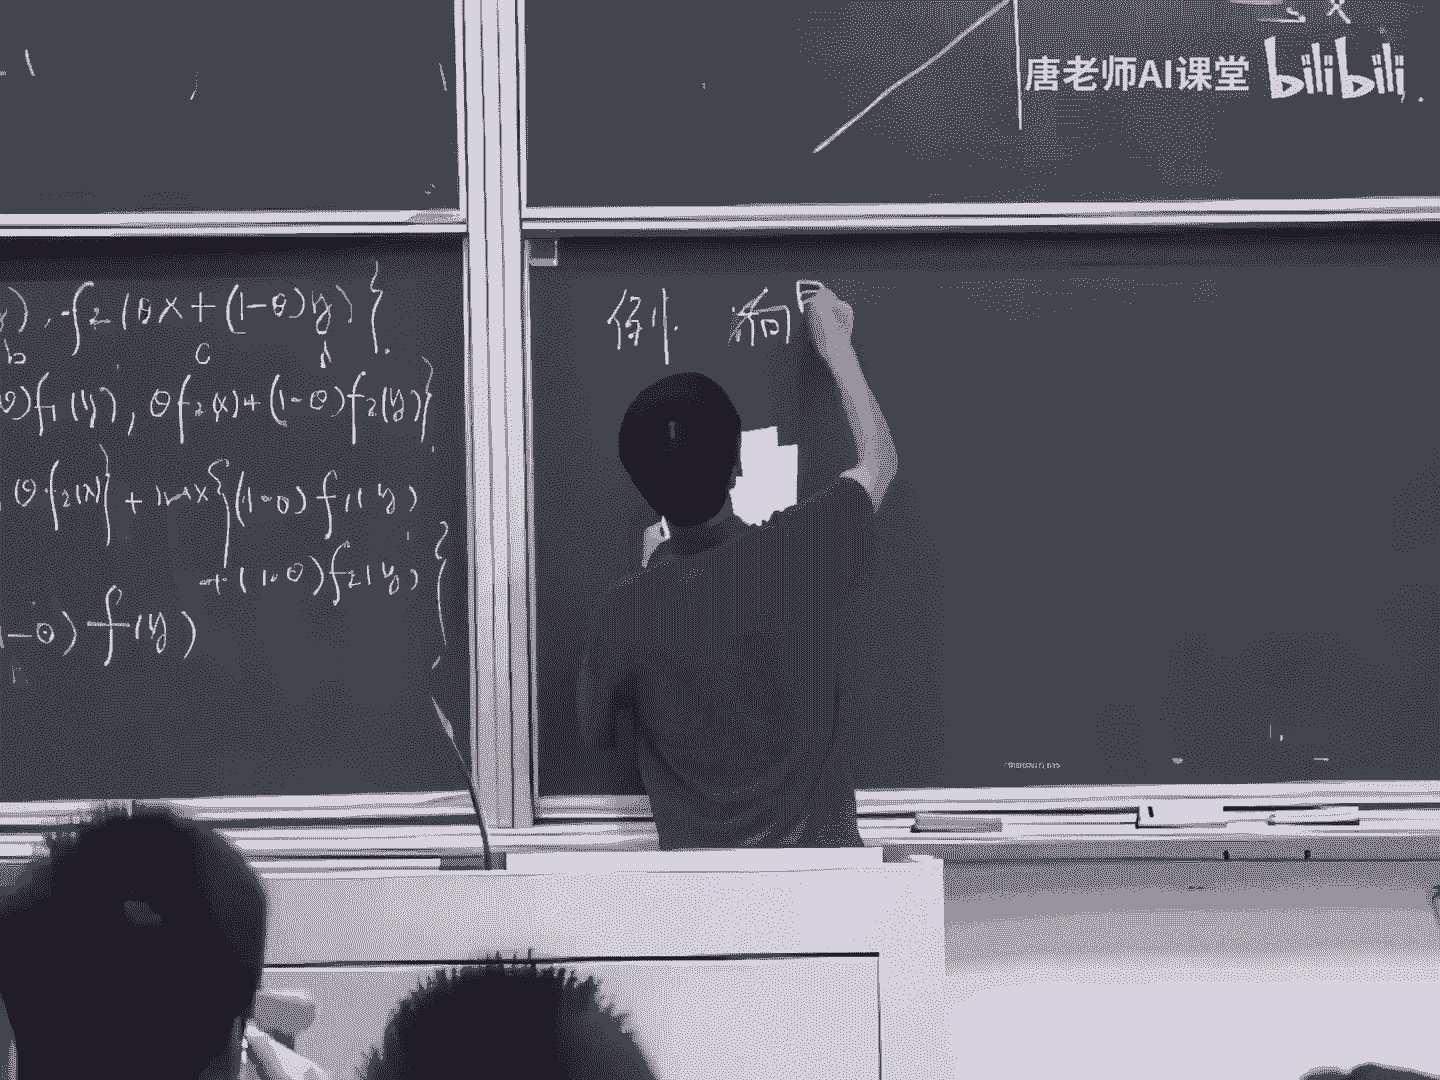 唐老师AI课堂 bilibili
), f₂(θx+(1-θ)y)}.
b c d
θ)f₁(y), θf₂(x)+(1-θ)f₂(y)}
θf₂(x)} + max{(1-θ)f₁(y)
+(1-θ)f₂(y)}
1-θ)f(y)
例. 向